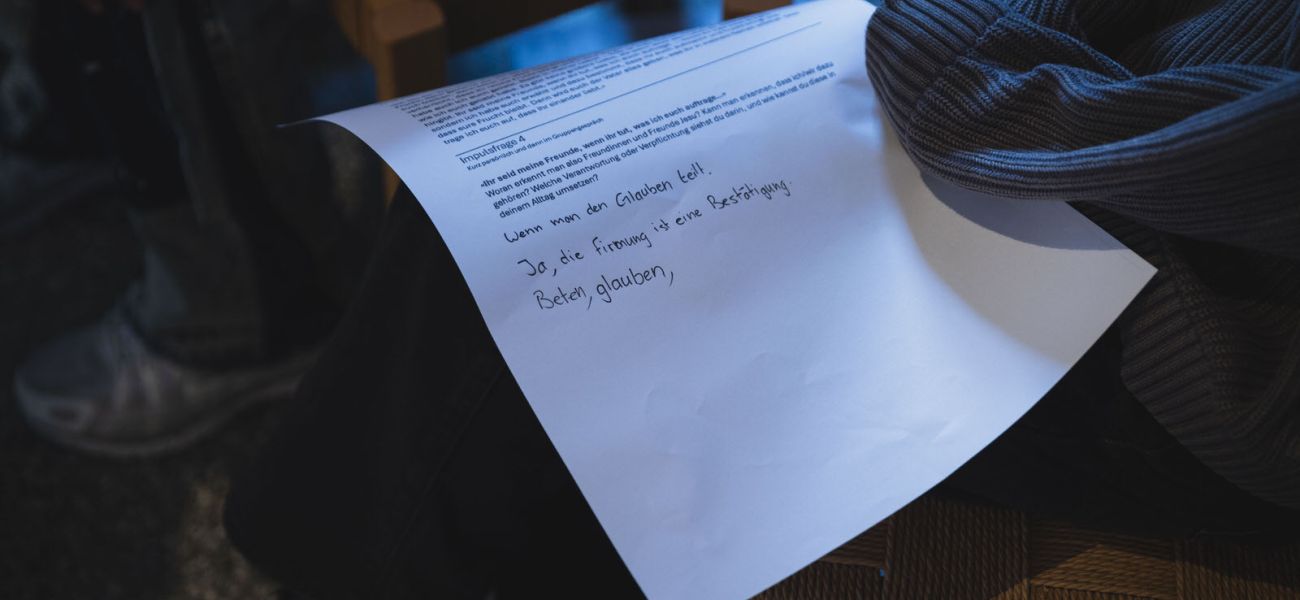 sondern ich habe euch erwählt und dazu bestimmt, dass
dass eure Frucht bleibt. Dann wird euch der Vater alles geben, was
trage ich euch auf, dass ihr einander liebt.»
Impulsfrage 4
Kurz persönlich und dann im Gruppengespräch
«Ihr seid meine Freunde, wenn ihr tut, was ich euch auftrage...»
Woran erkennt man also Freundinnen und Freunde Jesu? Kann man erkennen, dass ich/wir dazu
gehören? Welche Verantwortung oder Verpflichtung siehst du darin, und wie kannst du diese in
deinem Alltag umsetzen?
Wenn man den Glauben teilt.
Ja, die Firmung ist eine Bestätigung.
Beten, glauben,